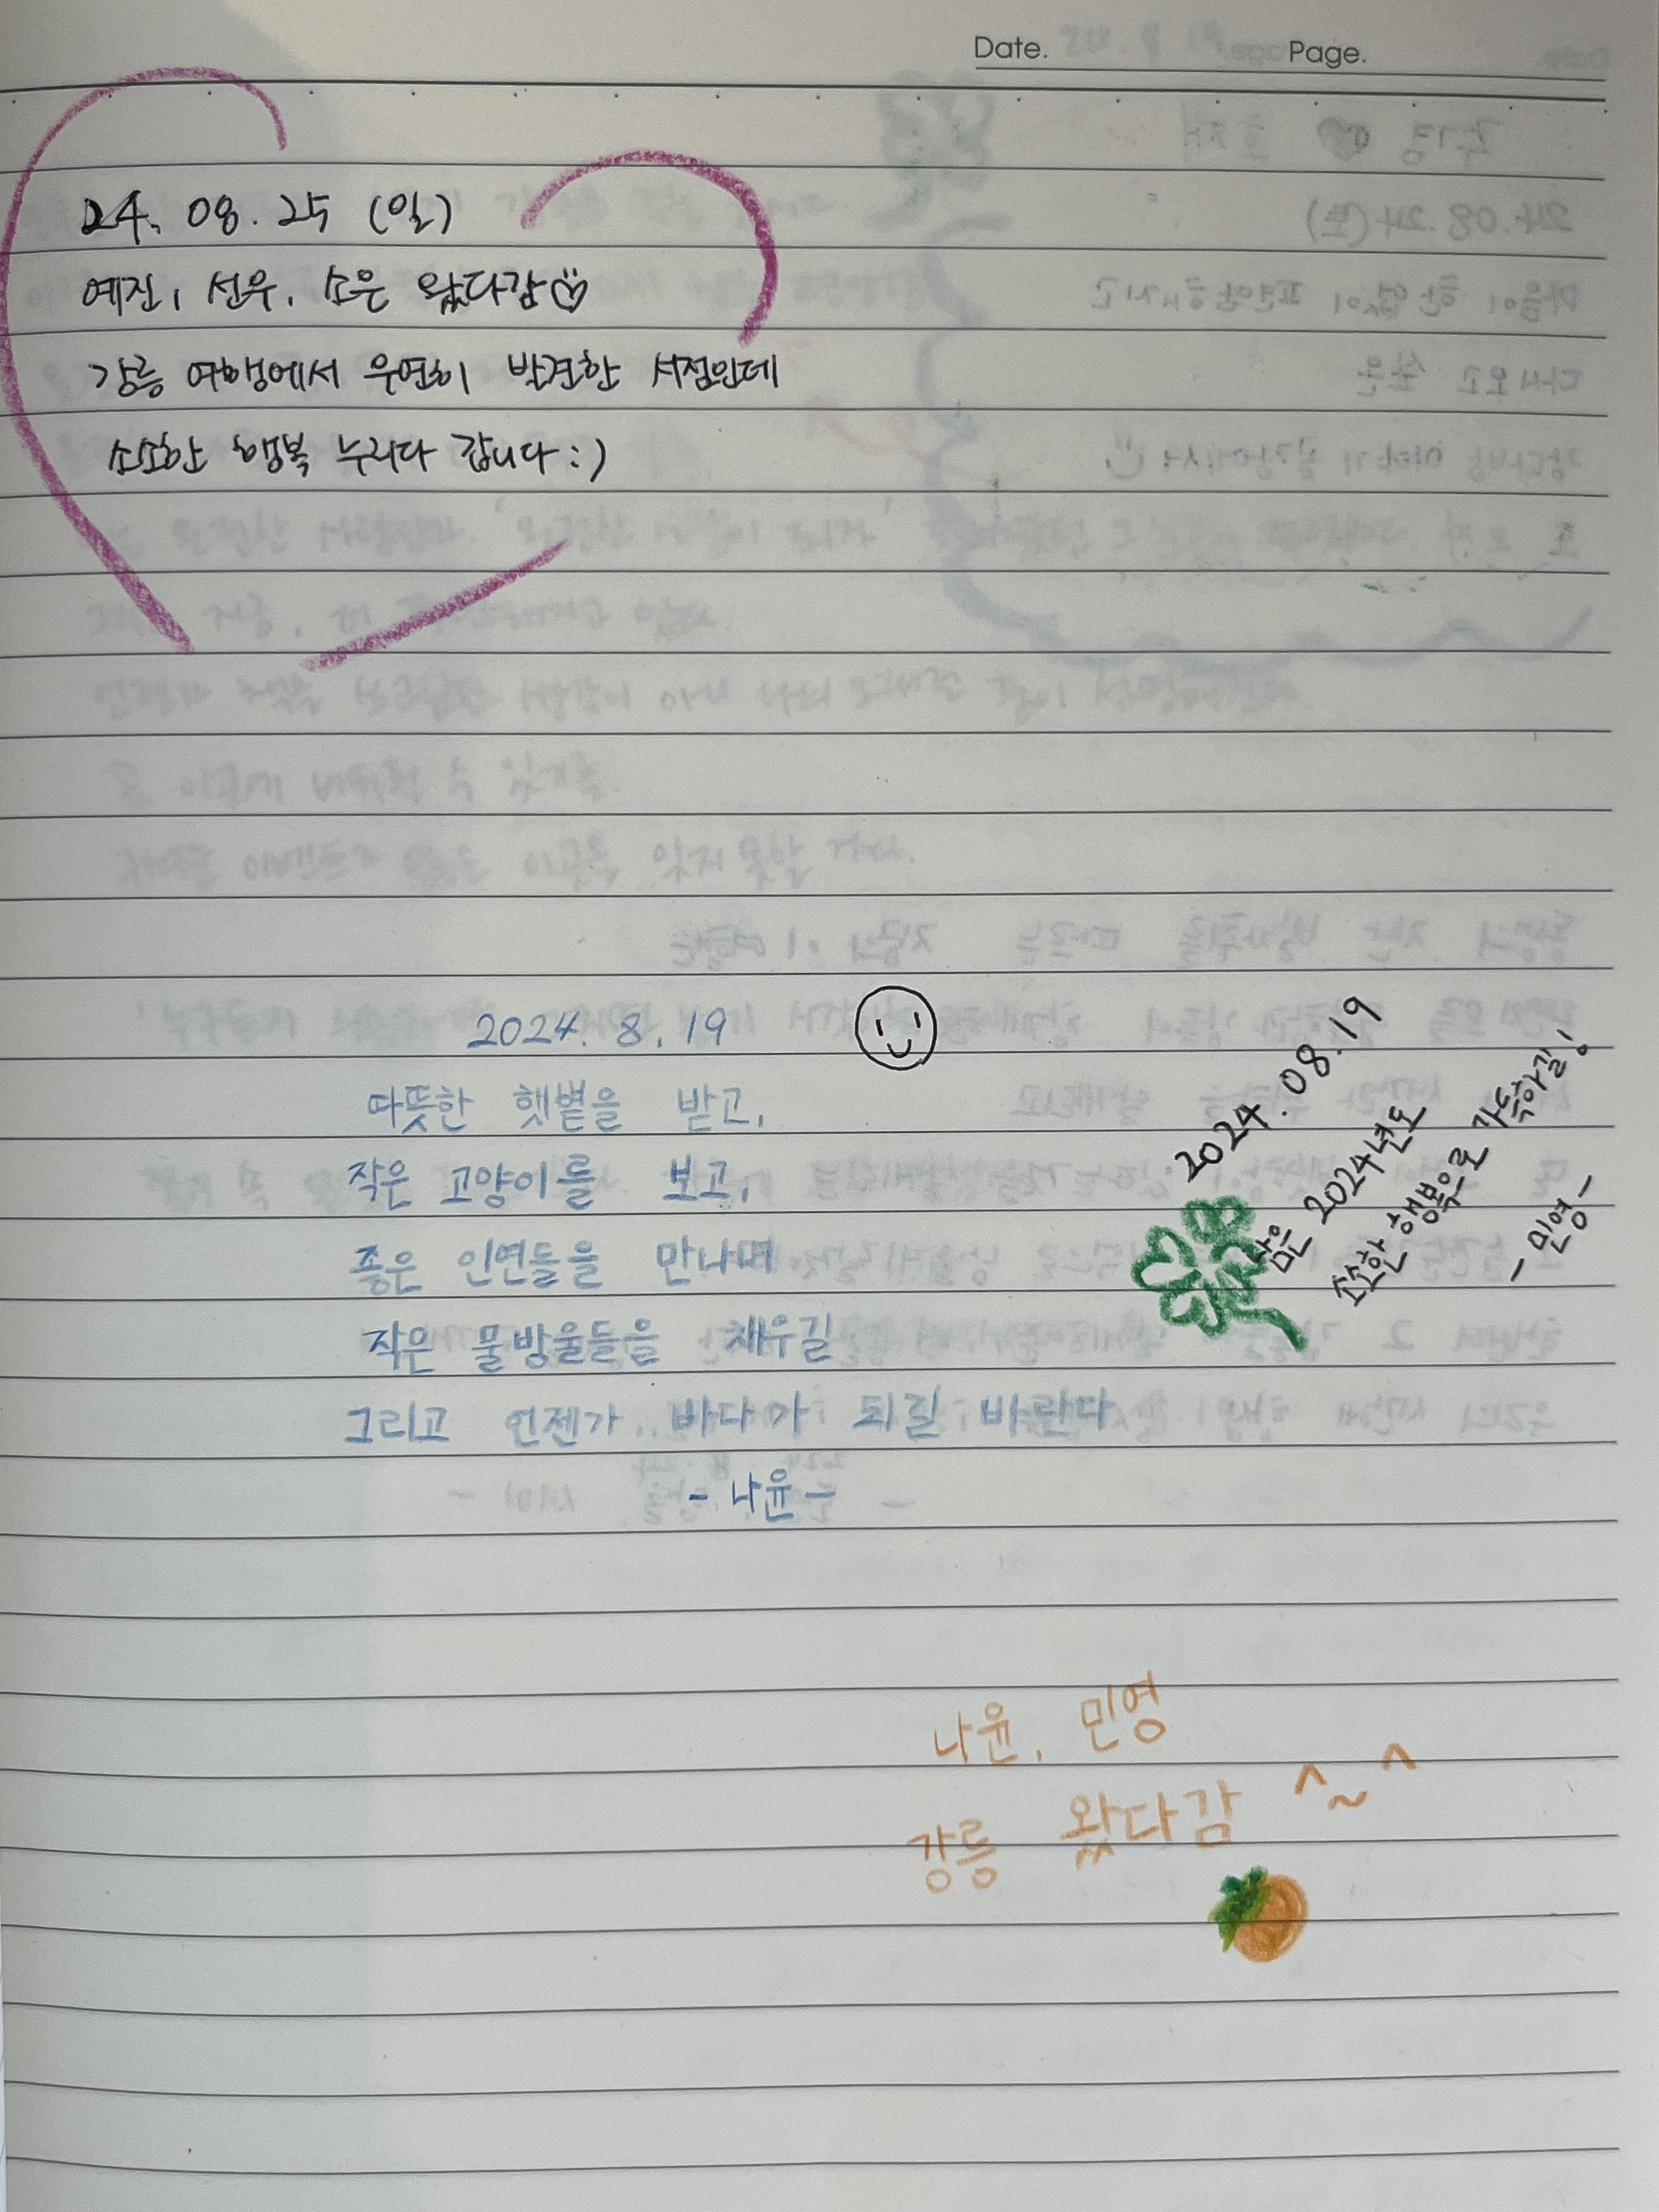 Date. Page.
24. 08. 25 (일)
예진, 선우, 소은 왔다감
강릉 여행에서 우연히 발견한 서점인데
소소한 행복 누리다 갑니다 :)
2024. 8. 19
따뜻한 햇볕을 받고,
작은 고양이를 보고,
좋은 인연들을 만나며
작은 물방울들을 채우길
그리고 언젠가 바다가 되길 바란다
- 나윤 -
2024. 08. 19
남은 2024년도
소소한 행복으로 가득하길!
- 민영 -
나윤, 민영
강릉 왔다감 ^~^